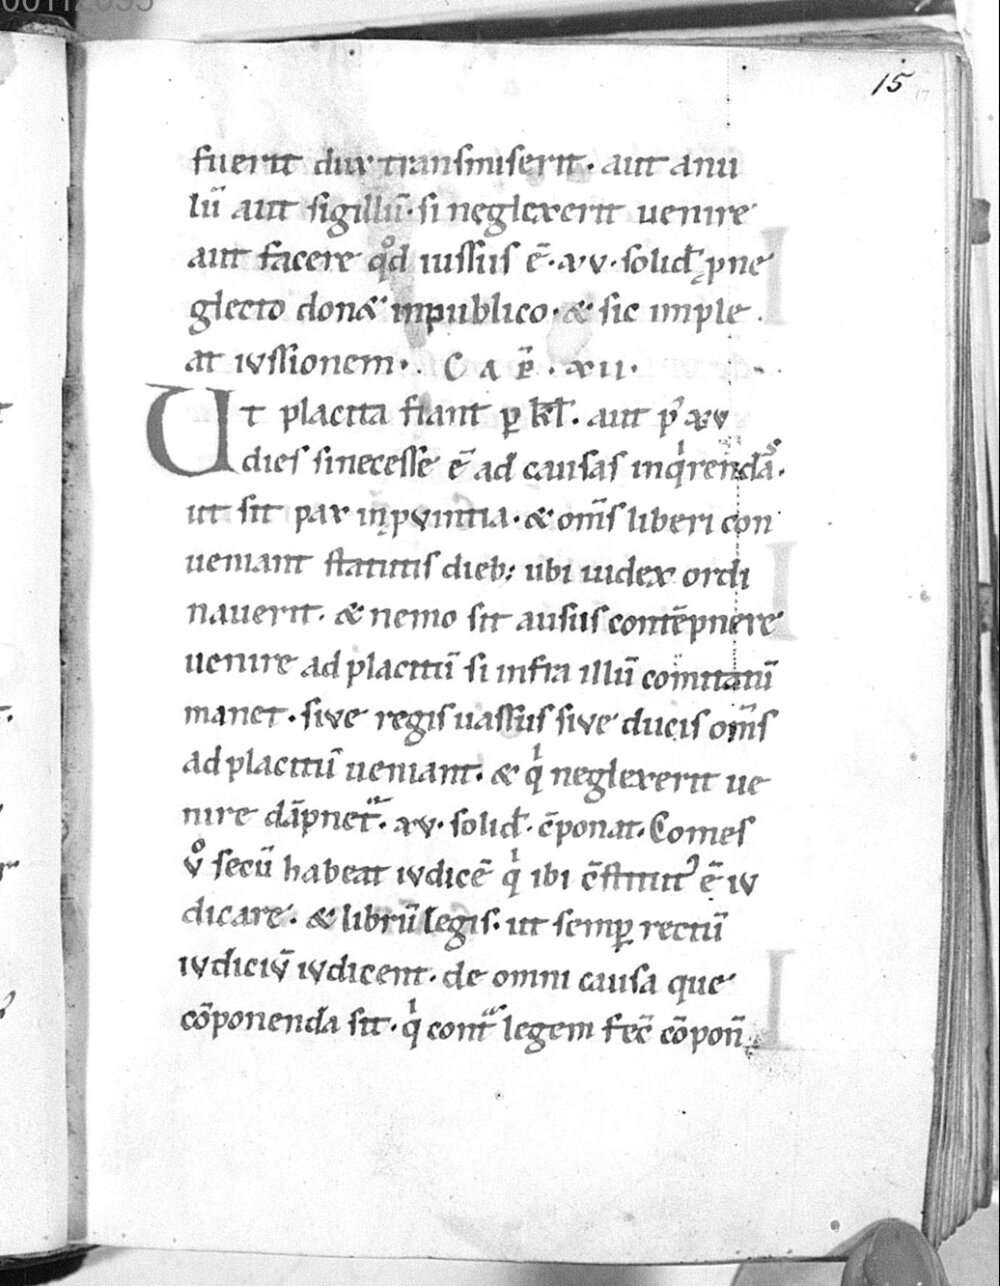 00112095
15
fuerit dux transmiserit. aut anu
lũ aut sigillũ. si neglexerit uenire
aut facere qͦd iussus ẽ. xv. solid̃ ꝓ ne
glecto donet᷑ in publico. & sic imple
at iussionem. CAP̃. XII.
Ut placita fiant ꝑ kl̃. aut pꝰ xv
dies si necesse ẽ ad causas inqͥrendãs.
ut sit pax in ꝓvintia. & om̃s liberi con
ueniant statutis dieb; ubi iudex ordi
nauerit. & nemo sit ausus contẽpnere
uenire ad placitũ si infra illũ comitatũ
manet. sive regis uassus sive ducis om̃s
ad placitũ ueniant. & qͥ neglexerit ue
nire dãpnet᷑. xv. solid̃. cõponat. Comes
vͦ secũ habeat ivdicẽ qͥ ibi cõstitutꝰ ẽ iv
dicare. & librũ legis. ut semꝑ rectũ
ivdiciṽ ivdicent. de omni causa que
cõponenda sit. qͥ contᷓ legem fec̃ cõpoñ